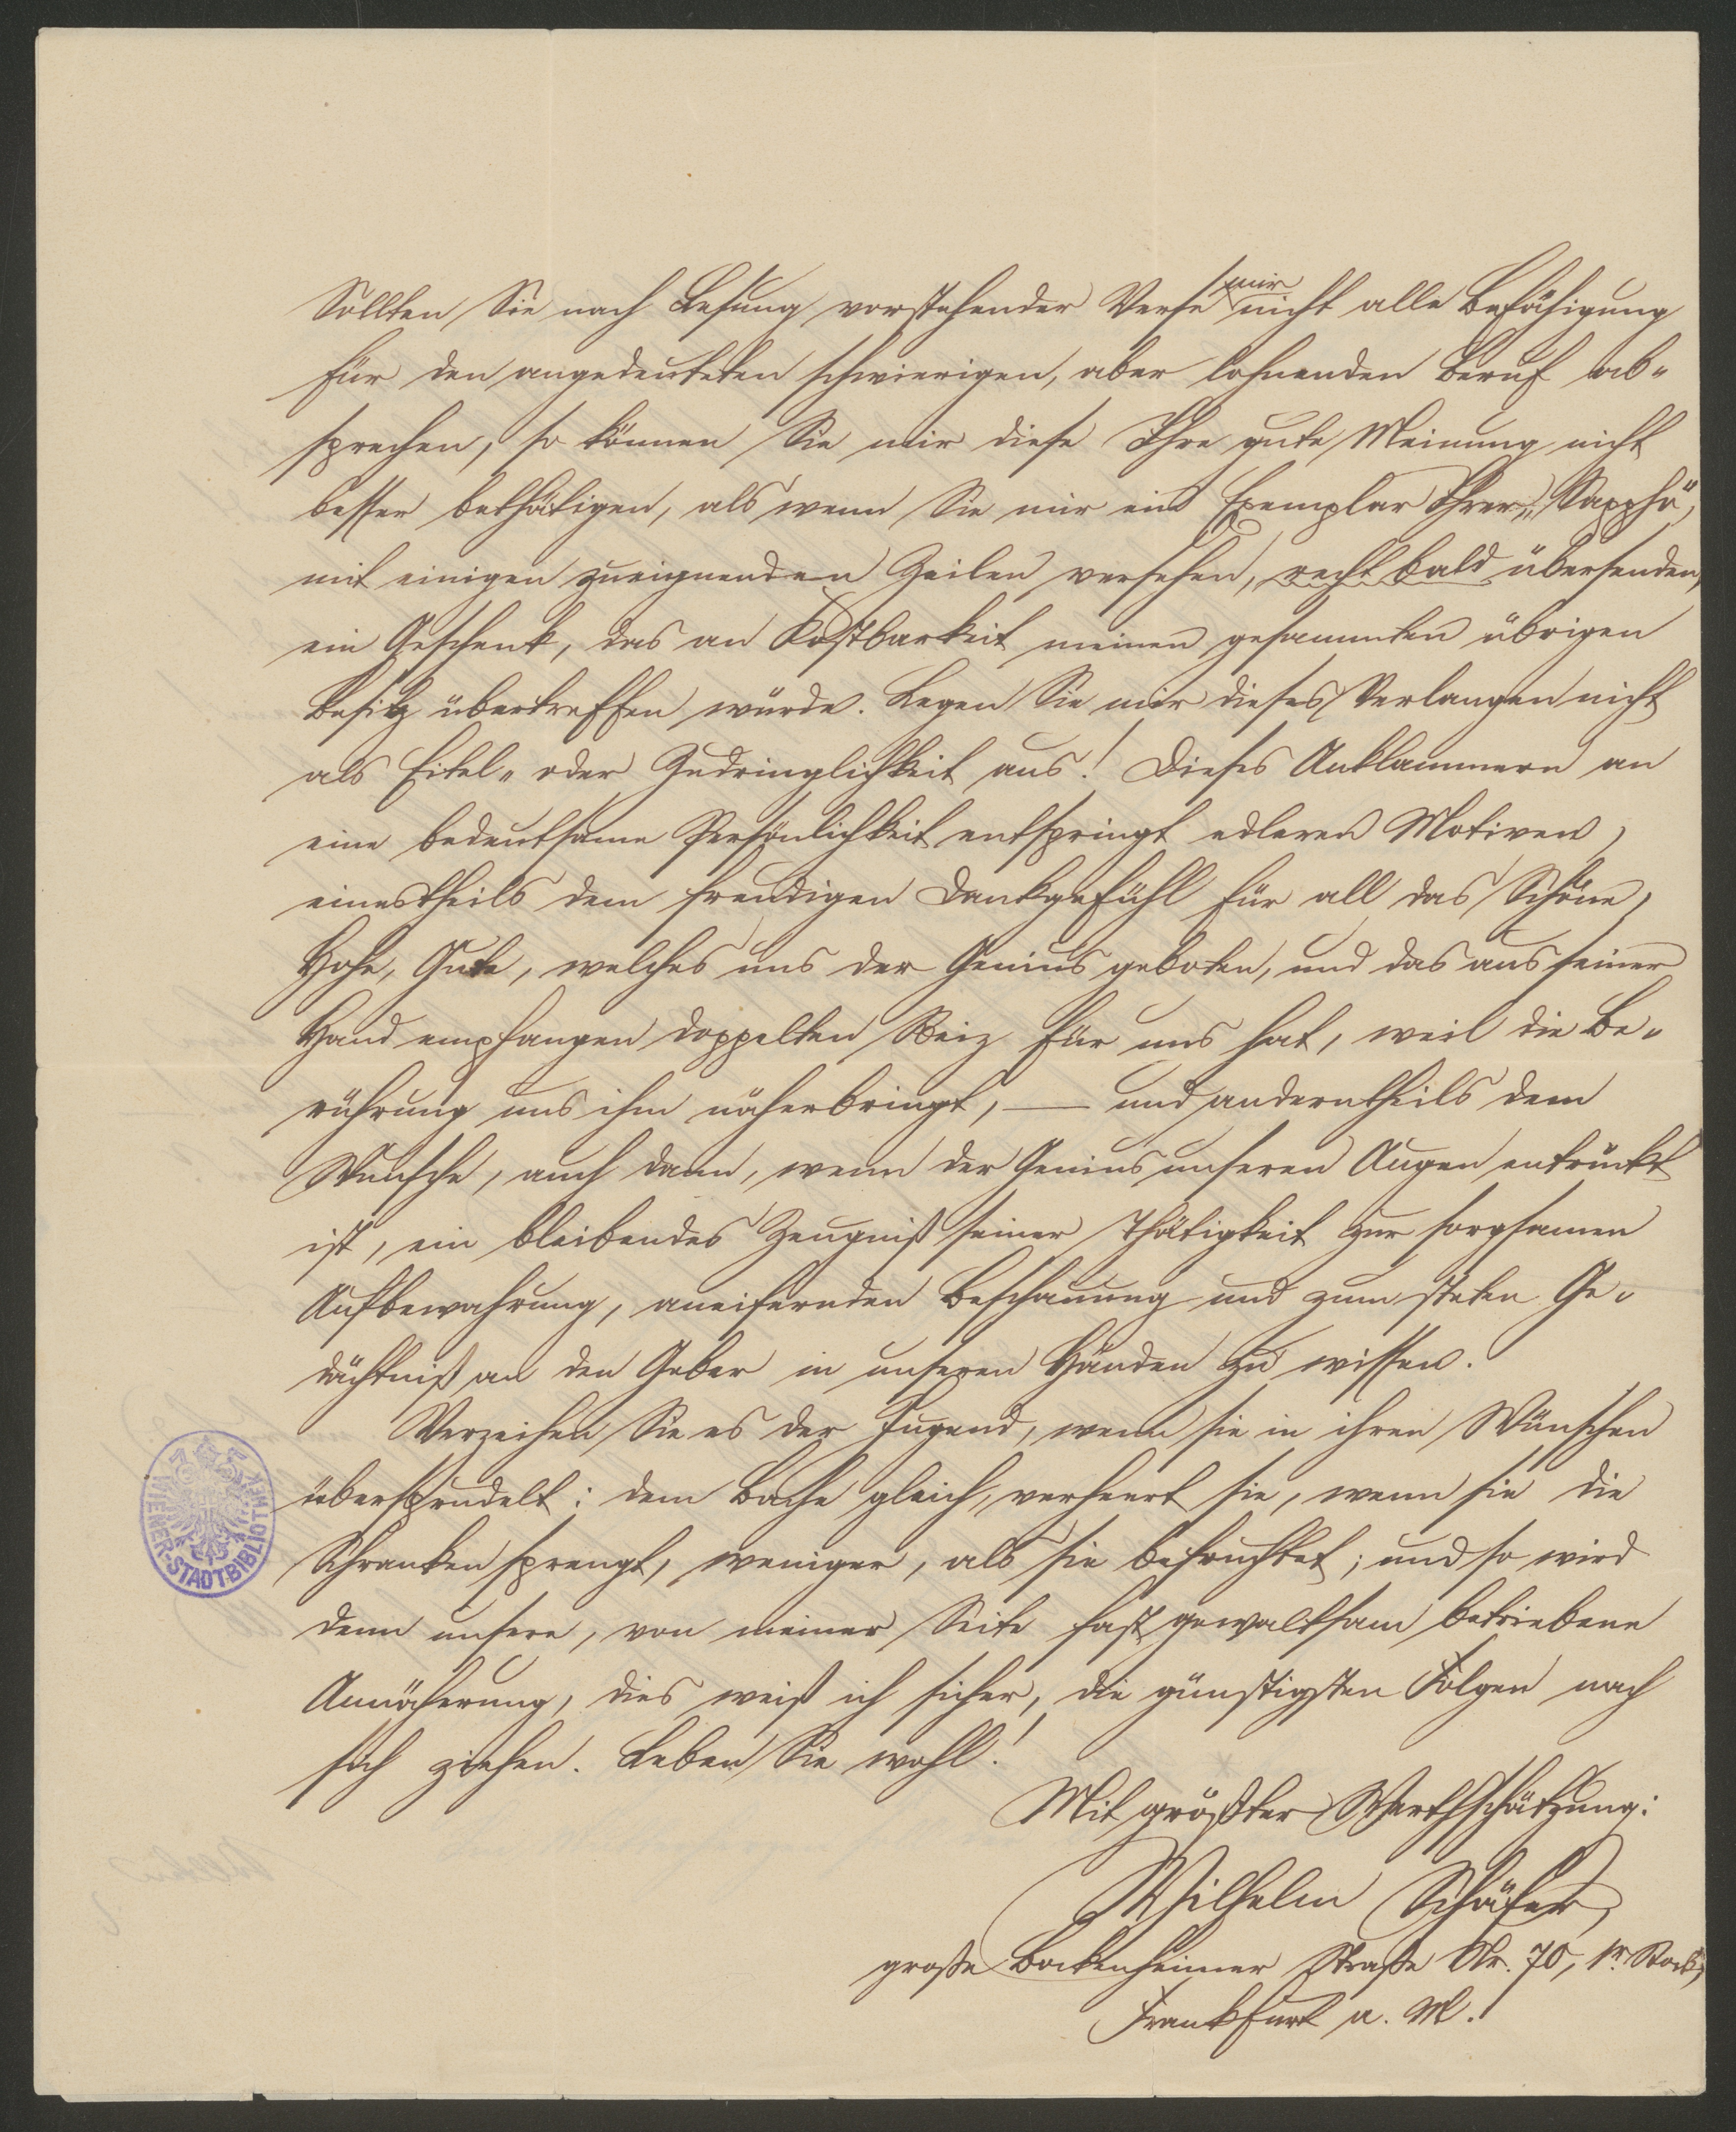 Sollten Sie nach Lesung vorstehender Verse mir nicht alle Befähigung
für den angedeuteten schwierigen, aber lohnenden Beruf ab-
sprechen, so können Sie mir diese Ihre gute Meinung nicht
besser bethätigen, als wenn Sie mir ein Exemplar Ihrer „Sappho“,
mit einigen zueignenden Zeilen versehen, recht bald übersenden,
ein Geschenk, das an Kostbarkeit meinen gesammten übrigen
Besitz übertreffen würde. Legen Sie mir dieses Verlangen nicht
als Eitel- oder Zudringlichkeit aus! Dieses Anklammern an
eine bedeutsame Persönlichkeit entspringt edleren Motiven,
einestheils dem freudigen Dankgefühl für all das Schöne,
Hohe, Gute, welches uns der Genius geboten, und das aus seiner
Hand empfangen doppelten Reiz für uns hat, weil die Be-
rührung uns ihm näherbringt, — und anderntheils dem
Wunsche, auch dann, wenn der Genius unseren Augen entrückt
ist, ein bleibendes Zeugniß seiner Thätigkeit zur sorgsamen
Aufbewahrung, aneifernden Beschauung und zum steten Ge-
dächtniß an den Geber in unseren Händen zu wissen.
Verzeihen Sie es der Jugend, wenn sie in ihren Wünschen
übersprudelt: dem Bache gleich, verheert sie, wenn sie die
Schranken sprengt, weniger, als sie befruchtet; und so wird
denn unsere, von meiner Seite fast gewaltsam betriebene
Annäherung, dies weiß ich sicher, die günstigsten Folgen nach
sich ziehen. Leben Sie wohl!
Mit größter Werthschätzung:
Wilhelm Schäfer,
große Bockenheimer Straße Nr. 70, 1r. Stock,
Frankfurt a. M.
WIENER-STADT-BIBLIOTHEK